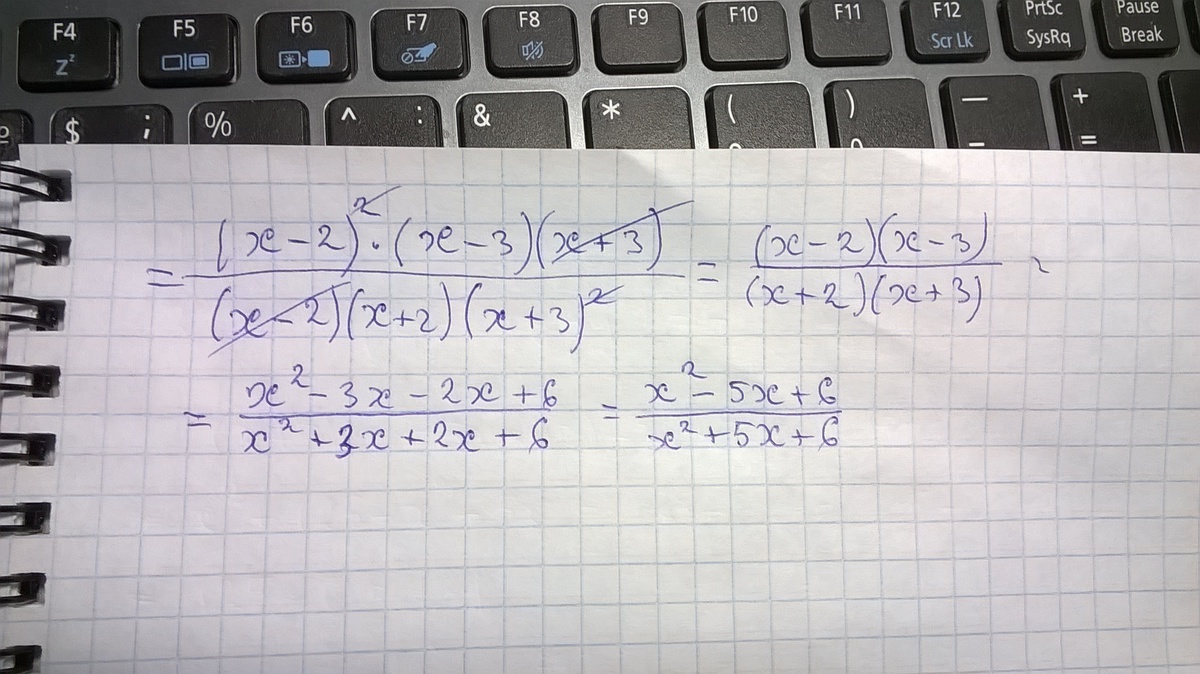 F4 F5 F6 F7 F8 F9 F10 F11 F12 PrtSc Pause
Zz Scr Lk SysRq Break
$ ; % ^ : & * ( ) — +
- =
= \frac{(x-2)^2 \cdot (x-3)(x+3)}{(x-2)(x+2)(x+3)^2} = \frac{(x-2)(x-3)}{(x+2)(x+3)} =
= \frac{x^2-3x-2x+6}{x^2+3x+2x+6} = \frac{x^2-5x+6}{x^2+5x+6}